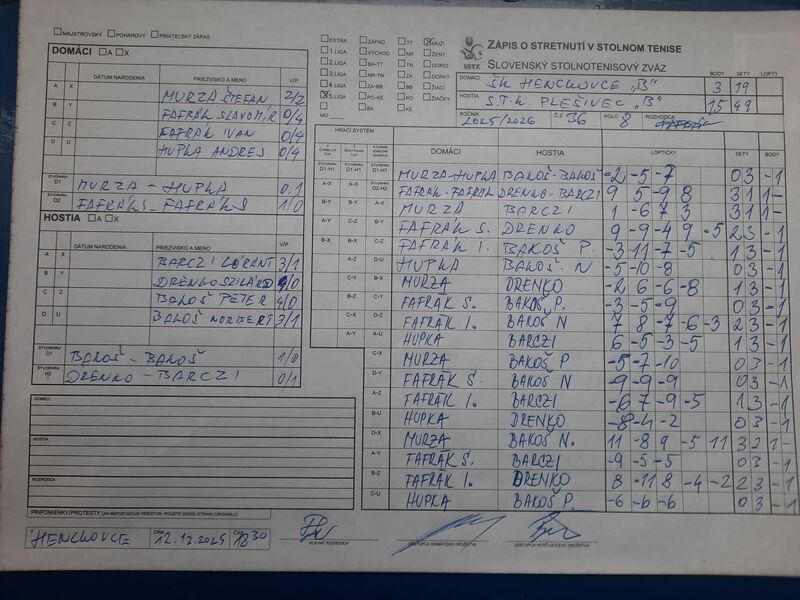 MAJSTROVSKÝ POHÁROVÝ PRIATEĽSKÝ ZÁPAS
DOMÁCI A X
DÁTUM NARODENIA PRIEZVISKO A MENO V/P
A X MURZA ŠTEFAN 2/2
B Y FAFRÁK SLAVOMÍR 0/4
C Z FAFRÁK IVAN 0/4
D U HUPKA ANDREJ 0/4
ŠTVORHRA D1 MURZA - HUPKA 0:1
D2 FAFRÁK S - FAFRÁK S 1/0
HOSTIA A X
DÁTUM NARODENIA PRIEZVISKO A MENO V/P
A X BARCZI LÓRANT 3/1
B Y DRENKO SZILÁRD 4/0
C Z BAKOŠ PÉTER 4/0
D U BAKOŠ NORBERT 3/1
ŠTVORHRA D1 BAKOŠ - BAKOŠ 1/0
ŠTVORHRA H2 DRENKO - BARCZI 0/1
DOMÁCI
HOSTIA
ROZHODCA
PRIPOMIENKY/PROTESTY (AK NEPOSTAČUJE PRIESTOR, POUŽITE ZADNÚ STRANU ORIGINÁLU)
V HENCKOVCE DŇA 12.12.2025 ČAS 18 30
HLAVNÝ ROZHODCA
ZÁSTUPCA DOMÁCEHO DRUŽSTVA
ZÁSTUPCA HOSŤUJÚCEHO DRUŽSTVA
EXTRA ZÁPAD TT MUŽI
1.LIGA VÝCHOD NR ŽENY
2.LIGA BA-TT TN DORCI
3.LIGA NR-TN ZA DORKY
4.LIGA ZA-BB BB ŽIACI
5.LIGA PO-KE PO ŽIAČKY
BA KE
MO
SSTZ
ZÁPIS O STRETNUTÍ V STOLNOM TENISE
SLOVENSKÝ STOLNOTENISOVÝ ZVÄZ
BODY SETY LOPTY
DOMÁCI ŠK HENCKOVCE "B" 3 19
HOSTIA S.T.K. PLEŠIVEC "B" 15 49
ROČNÍK 2025/2026 Č.Z 36 KOLO 8 ROZHODCA
HRACÍ SYSTÉM
DOMÁCI HOSTIA LOPTIČKY SETY BODY
D1-H1 D1-H1 D1-H1 MURZA-HUPKA BAKOŠ-BAKOŠ -2 -5 -7 0 3 -1
A-X A-X D2-H2 FAFRÁK-FAFRÁK DRENKO-BARCZI 9 5 -9 8 3 1 1-
B-Y B-Y A-X MURZA BARCZI 1 -6 7 3 3 1 1-
A-Y C-Z B-Y FAFRÁK S. DRENKO 9 -9 -4 9 -5 2 3 -1
B-X B-X C-Z FAFRÁK I. BAKOŠ P. -3 11 -7 -5 1 3 -1
A-Z D-U HUPKA BAKOŠ. N -5 -10 -8 0 3 -1
C-Y B-X MURZA DRENKO -2 6 -6 -8 1 3 -1
B-Z C-Y FAFRÁK S. BAKOŠ P. -3 -5 -9 0 3 -1
C-X D-Z FAFRÁK I. BAKOŠ N 7 8 -7 -6 -3 2 3 -1
A-Y A-U HUPKA BARCZI 6 -5 -3 -5 1 3 -1
C-X MURZA BAKOŠ P -5 -7 -10 0 3 -1
D-Y FAFRÁK S. BAKOŠ N -9 -9 -9 0 3 -1
A-Z FAFRÁK I. BARCZI -6 7 -9 -5 1 3 -1
B-U HUPKA DRENKO -8 -4 -2 0 3 -1
D-X MURZA BAKOŠ N. 11 -8 9 -5 11 3 2 1-
A-Y FAFRÁK S. BARCZI -9 -5 -5 0 3 -1
B-Z FAFRÁK I. DRENKO 8 -11 8 -4 -2 2 3 -1
C-U HUPKA BAKOŠ P. -6 -6 -6 0 3 -1